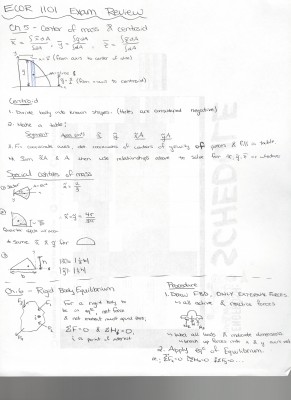 ECOR 1101 Exam Review
Ch.5 - Center of mass & centroid
x̄ = ∫x̃dA / ∫dA , ȳ = ∫ỹdA / ∫dA , z̄ = ∫z̃dA / ∫dA
(from axis to centroid)
Centroid
1. Divide body into known shapes. (Holes are considered negative)
2. Make a table!
Segment Area (m²) x̃ ỹ x̃A ỹA
3. Fix coordinate axes, get measures of centers of gravity of pieces & fill in table.
4. Sum x̃A & A then use relationships above to solve for x̄, ȳ, z̄ or whatever
Special centers of mass
Quarter
4. Same x̄ & ȳ for
Ch.6 - Rigid Body Equilibrium
For a rigid body to
be in eqᵐ, net force
& net moment must equal zero,
ΣF=0 & ΣM₀=0,
is point of interest
Procedure
1. DRAW FBD, ONLY EXTERNAL FORCES
→ all active & reactive forces
→ label all loads & indicate dimensions
→ break up forces into x & y axis
2. Apply eqⁿ of Equilibrium.